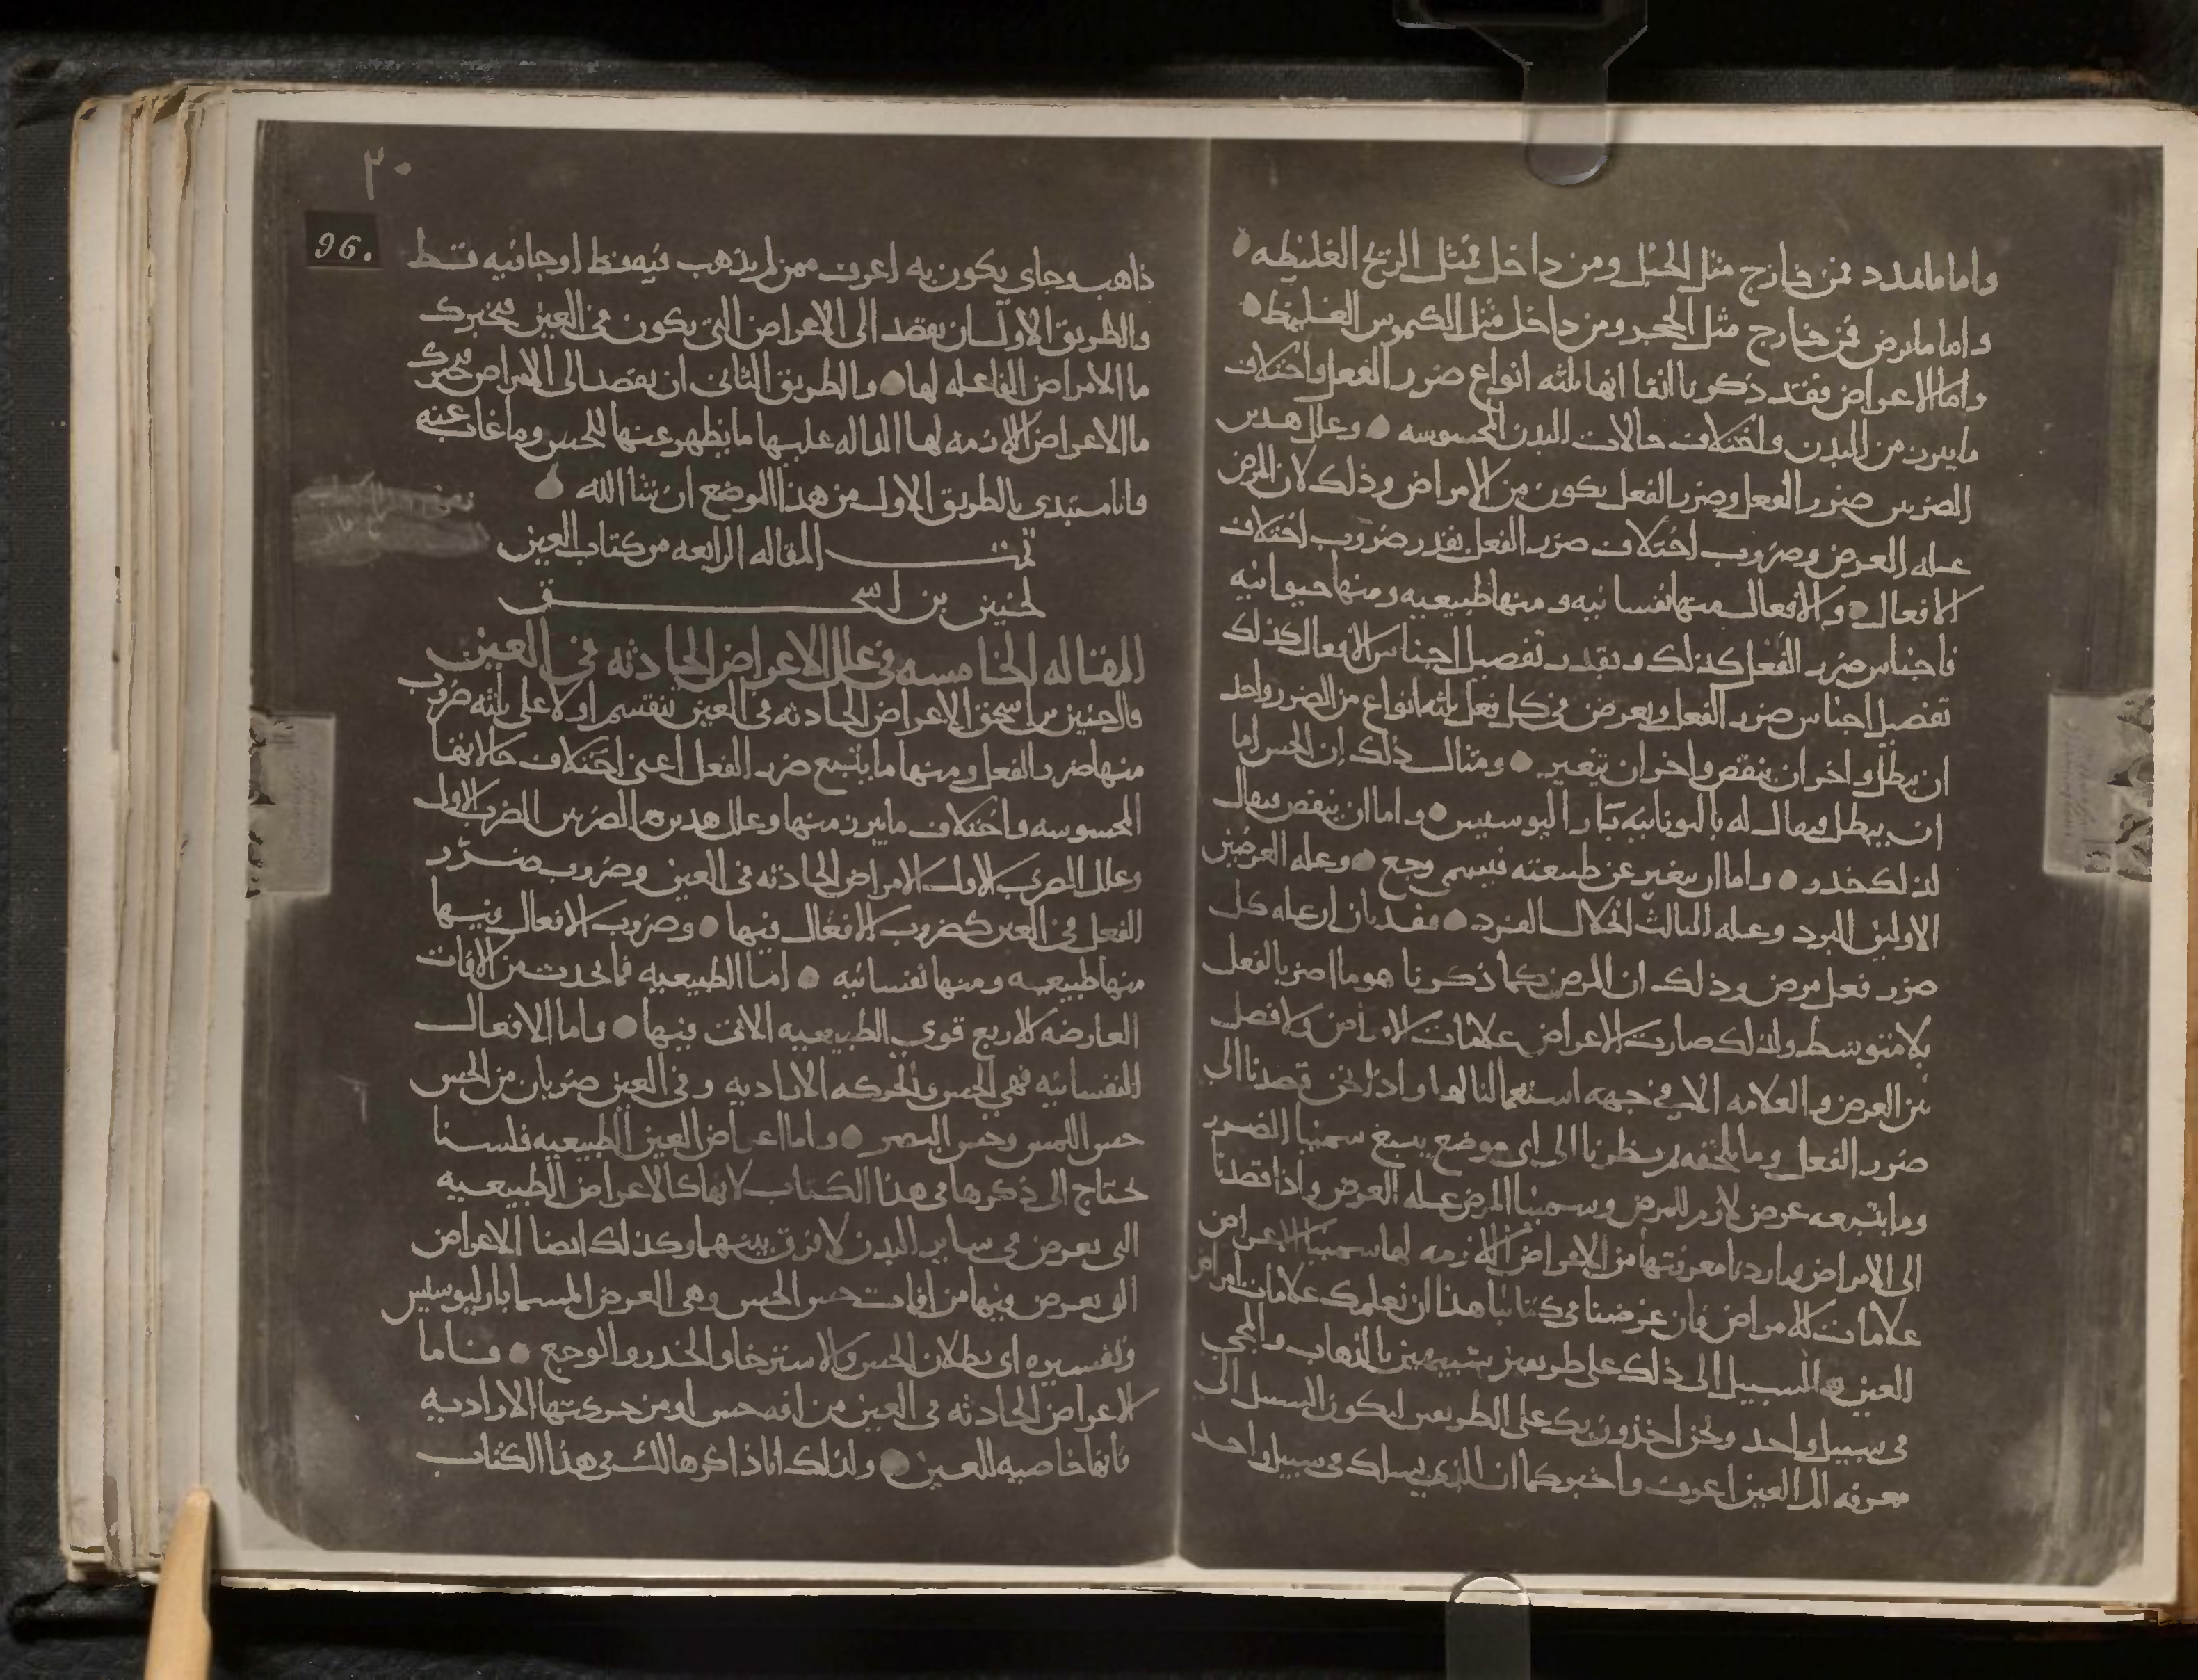 واما ما يمدد فمن خارج مثل الحبل ومن داخل فمثل الريح الغليظه
واما ما يرض فمن خارج مثل الحجر ومن داخل مثل الكيموس الغليظ
واما الاعراض فقد ذكرنا انفا انها ثلثه انواع ضرر الفعل واختلاف
ما يبرز من البدن واختلاف حالات البدن المحسوسه وعلل هذين
الضربين ضرر الفعل وضرر الفعل يكون من الامراض وذلك لان المرض
عله العرض وضروب اختلاف ضرر الفعل بقدر ضروب اختلاف
الافعال والافعال منها نفسانيه ومنها طبيعيه ومنها حيوانيه
فاجناس ضرر الفعل كذلك وبقدر تفصيل اجناس الافعال كذلك
تفصيل اجناس ضرر الفعل ويعرض في كل فعل ثلثه انواع من الضرر واحد
ان يبطل واخر ان ينقص واخر ان يتغير ومثال ذلك ان الحس اما
ان يبطل فيقال له باليونانيه بارا ليوسيس واما ان ينقص فيقال
لذلك خدر واما ان يتغير عن طبيعته فيسمى وجع وعله العرضين
الاولين البرد وعله الثالث انحلال الفرد فقد بان ان عله كل
ضرر فعل مرض وذلك ان المرض كما ذكرنا هو ما اضر بالفعل
بلا متوسط ولذلك صارت الاعراض علامات الامراض ولا فصل
بين العرض والعلامه الا في جهه استعمالنا لها واذا نحن قصدنا الى
ضرر الفعل وما يلحقه ثم نظرنا الى اي موضع سمينا الضرر
وما يتبعه عرض لازم للمرض وسمينا المرض عله العرض واذا قصدنا
الى الامراض واردنا معرفتها من الاعراض اللازمه لها سمينا الاعراض
علامات للامراض فان غرضنا في كتابنا هذا ان نعلمك علامات امراض
العين فالسبيل الى ذلك على طريقين شبيهين بالذهاب والمجي
في سبيل واحد ونحن اخذون بك على الطريقين ليكون السبيل الى
معرفه الم العين اعرف واخبر كما ان الذي يسلك في سبيل واحد
٣٠
96.
ذاهب وجاي يكون به اعرف ممن لم يذهب فيه فقط او جا فيه فقط
والطريق الاول ان يقصد الى الاعراض التي يكون في العين فنخبرك
ما الامراض الفاعله لها والطريق الثاني ان نقصد الى الامراض فنخبرك
ما الاعراض اللازمه لها الداله عليها ما يظهر عنها للحس وما غاب عنه
وانا مبتدي بالطريق الاول من هذا الموضع ان شا الله
تمت المقاله الرابعه من كتاب العين
لحنين بن اسحق
المقاله الخامسه في علل الاعراض الحادثه في العين
قال حنين بن اسحق الاعراض الحادثه في العين تنقسم اولا على ثلثه ضروب
منها ضرر الفعل ومنها ما يتبع ضرر الفعل اعني اختلاف حالاتها
المحسوسه واختلاف ما يبرز منها وعلل هذين الضربين الضرب الاول
وعلل الضرب الاول الامراض الحادثه في العين وضروب ضرر
الفعل في العين كضروب الافعال فيها وضروب الافعال فيها
منها طبيعيه ومنها نفسانيه اما الطبيعيه فما يحدث من الافات
العارضه للاربع قوي الطبيعيه الاتي فيها واما الافعال
النفسانيه فهي الحس والحركه الاراديه وفي العين ضربان من الحس
حس اللمس وحس البصر واما اعراض العين الطبيعيه فلسنا
نحتاج الى ذكرها في هذا الكتاب لانها كالاعراض الطبيعيه
التي تعرض في ساير البدن لا فرق بينهما وكذلك ايضا الاعراض
التي تعرض فيها من افات حس الحس وهي العرض المسما باراليوسيس
وتفسيره اي بطلان الحس والاسترخا والخدر والوجع فاما
الاعراض الحادثه في العين من افه حس او من حركتها الاراديه
فانها خاصيه للعين ولذلك انا ذاكرها لك في هذا الكتاب